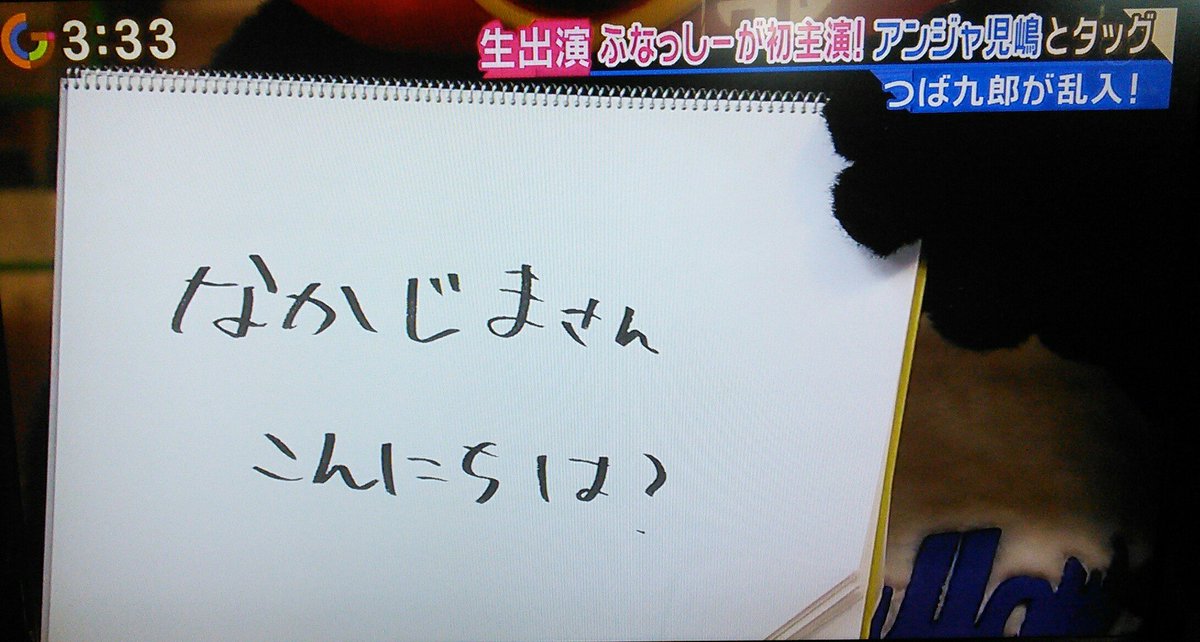 3:33
生出演 ふなっしーが初主演！アンジャ児嶋とタッグ
つば九郎が乱入！
なかじまさん
こんにちは？